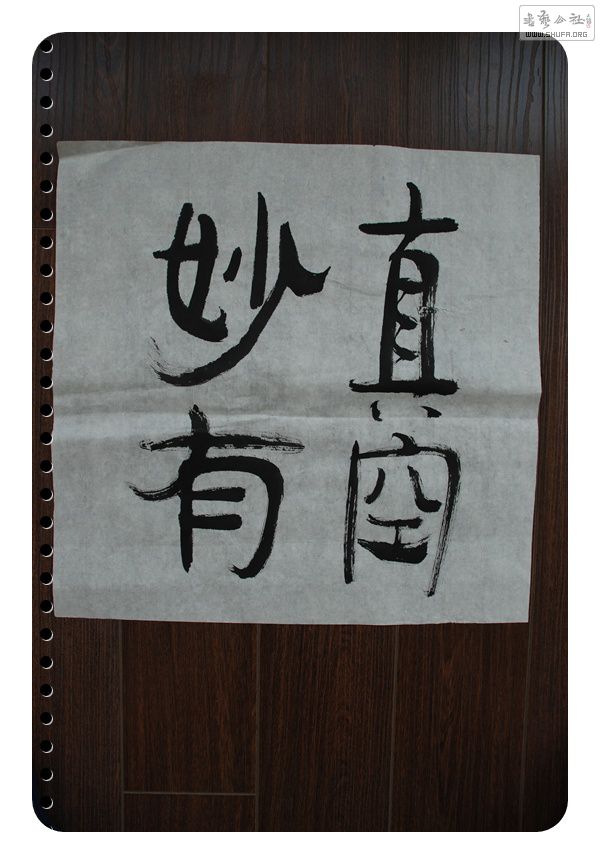 真空
妙有
書藝公社
WWW.SHUFA.ORG